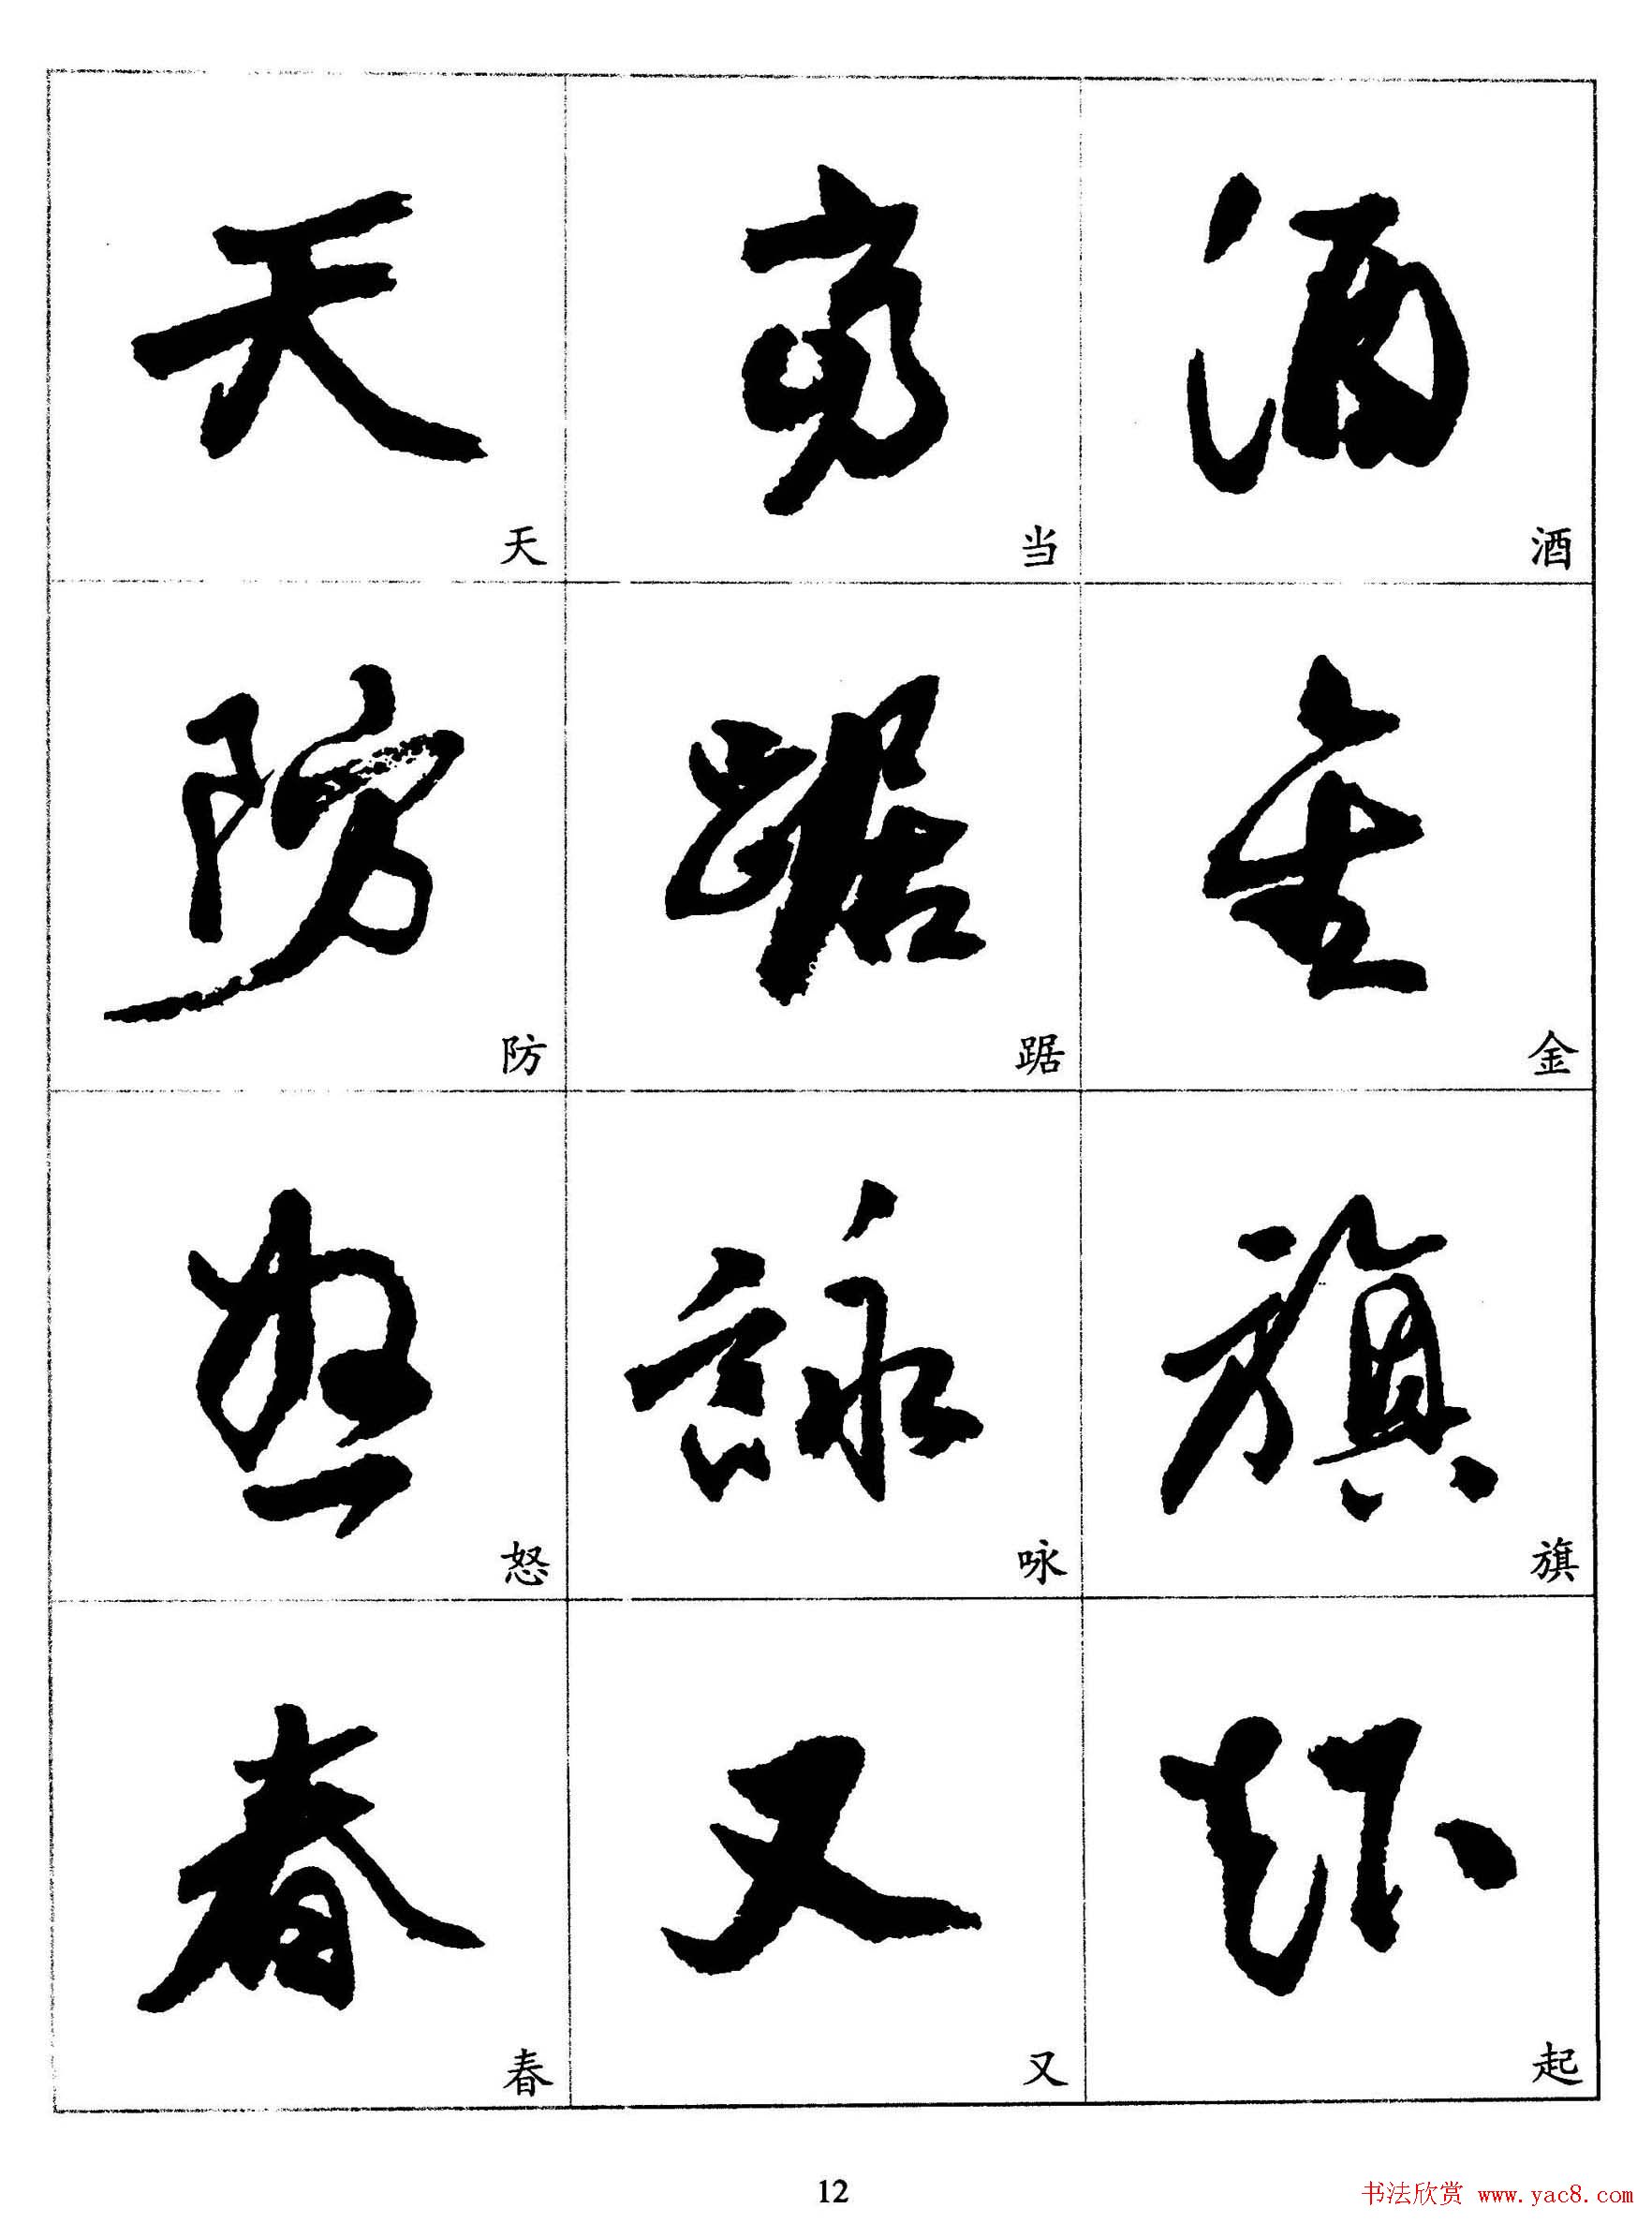 天 当 酒
防 踞 金
怒 詠 旗
春 又 起
天 当 酒
防 踞 金
怒 咏 旗
春 又 起
12
书法欣赏 www.yac8.com